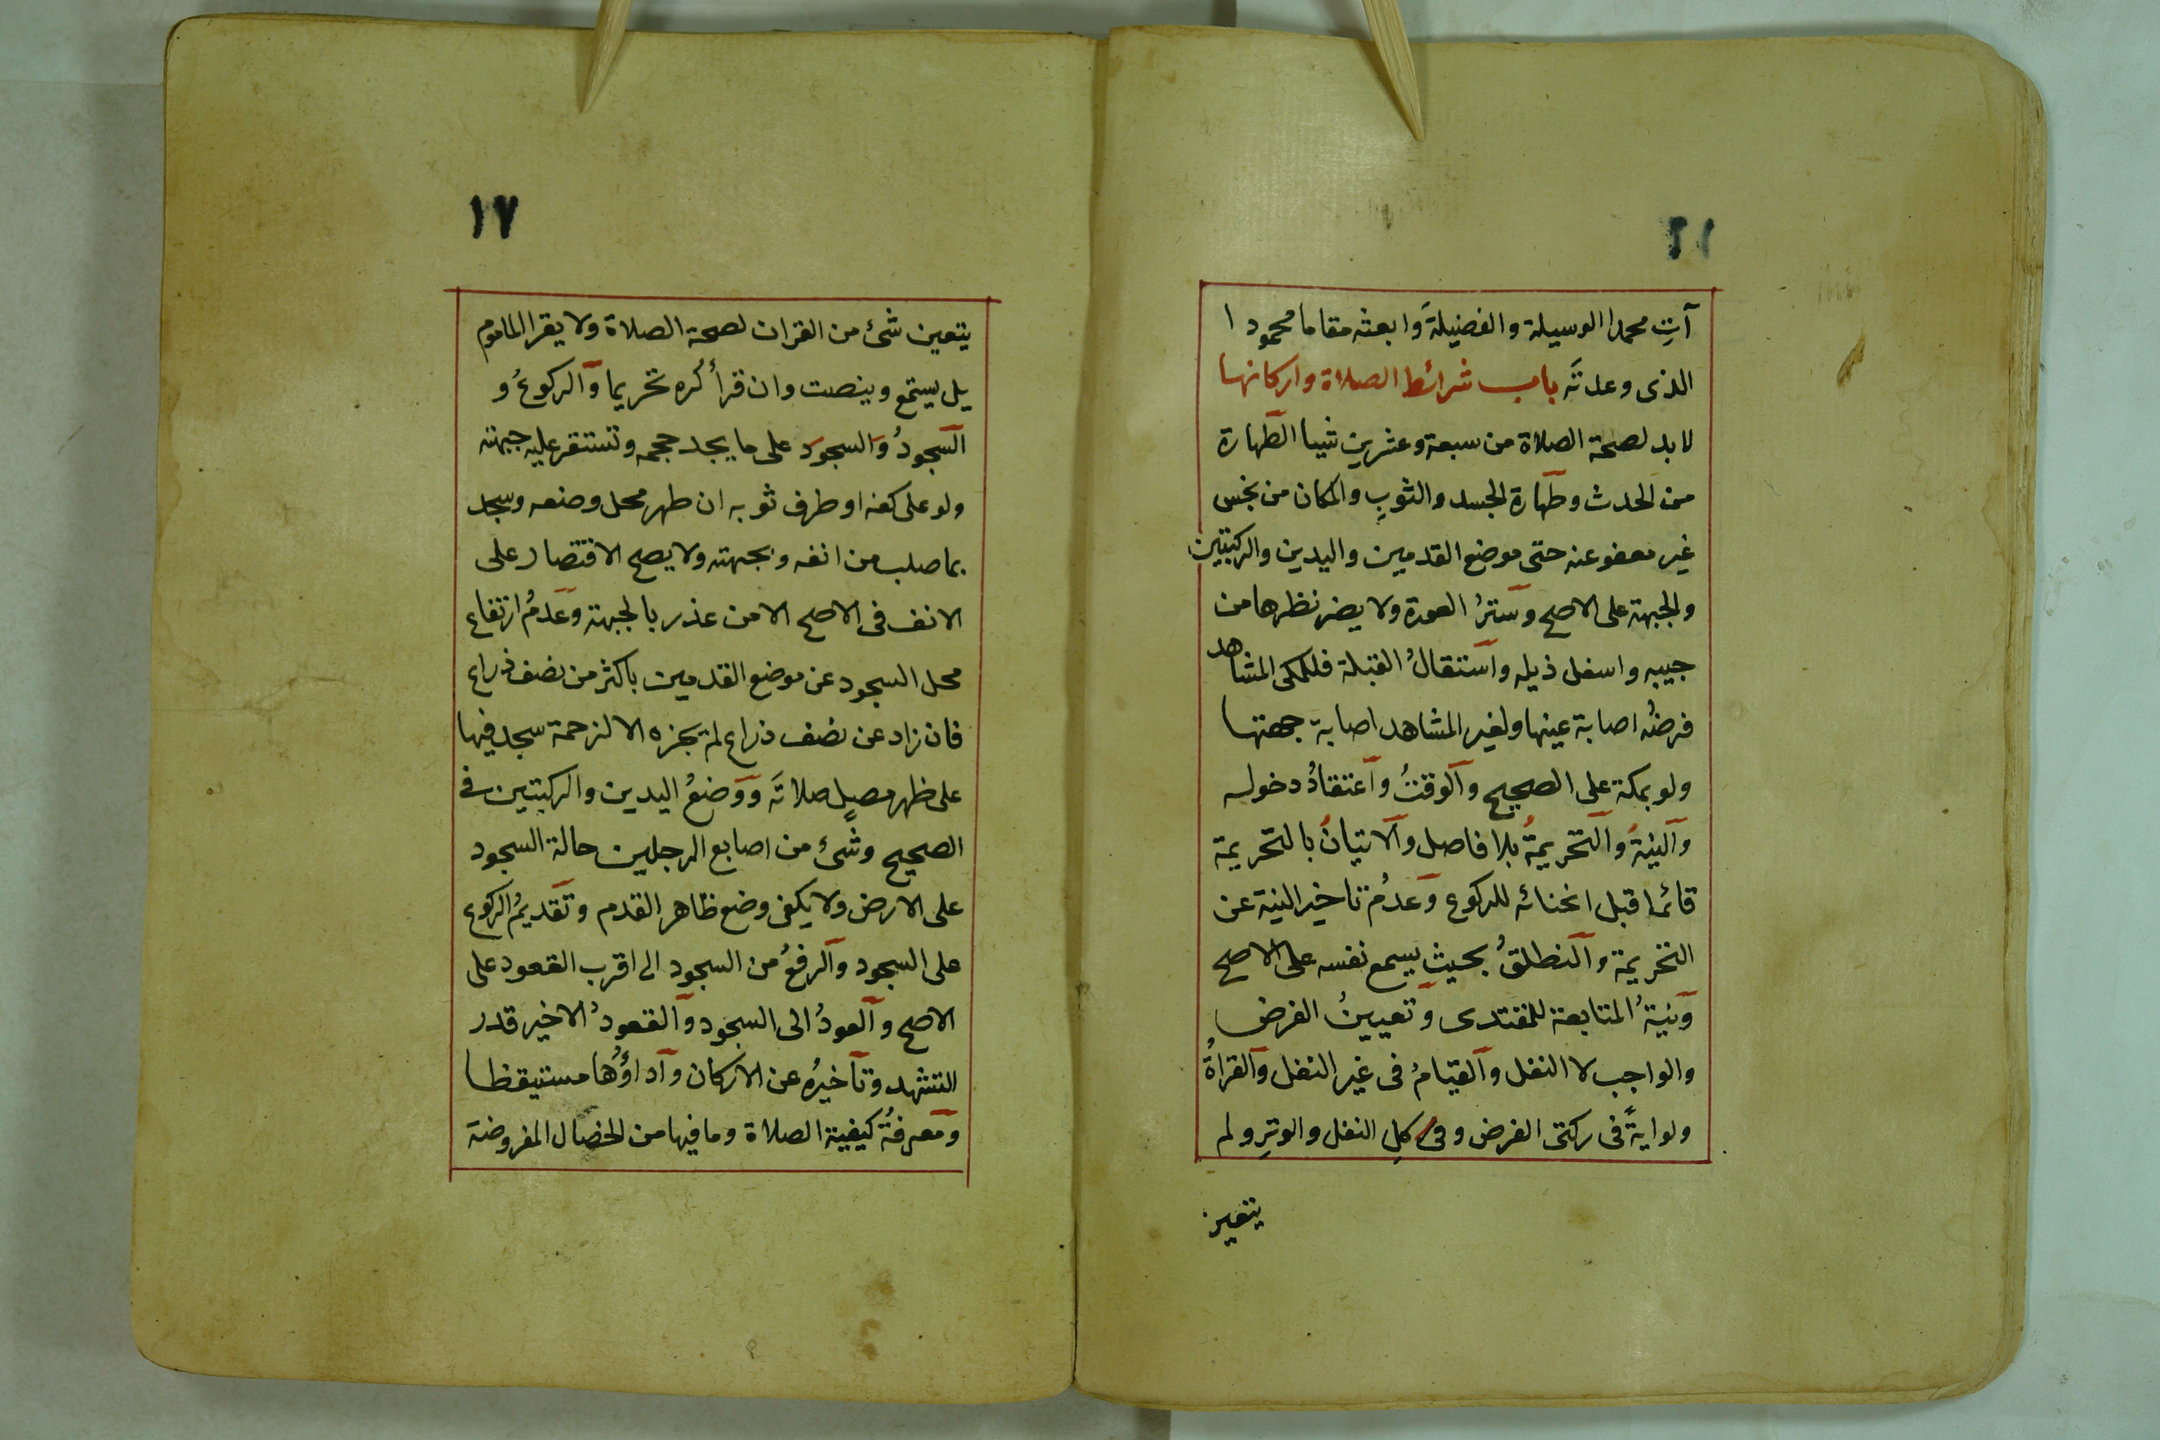 ١٦
آتِ محمدا الوسيلة والفضيلةَ وابعثه مقاما محمودا
الذى وعدتَه باب شرائط الصلاة واركانها
لا بد لصحة الصلاة من سبعة وعشرين شيا الطهارة
من الحدث وطهارة الجسد والثوبِ والمكان من نجس
غير معفو عنه حتى موضع القدمين واليدين والركبتين
والجبهة على الاصح وسترُ العورة ولا يضر نظرها من
جيبه واسفل ذيله واستقبالُ القبلة فللمكى المشاهد
فرضُه اصابة عينها ولغير المشاهد اصابة جهتها
ولو بمكة على الصحيح والوقتُ واعتقادُ دخوله
والنيةُ والتحريمةُ بلا فاصل والاتيانُ بالتحريمة
قائما قبل انحنائه للركوع وعدمُ تاخير النية عن
التحريمة والنطقُ بحيث يسمع نفسه على الاصح
ونيةُ المتابعة للمقتدى وتعيينُ الفرض
والواجب لا النفل والقيامُ فى غير النفل والقراةُ
ولو ايةً فى ركعتى الفرض وفى كلِ النفل والوترِ ولم
يتعين
١٧
يتعين شئ من القران لصحة الصلاة ولا يقرا الماموم
بل يستمع وينصت وان قرأ كُره تحريما والركوعُ و
السجودُ والسجود على ما يجد حجمه وتستقر عليه جبهته
ولو على كفه او طرف ثوبه ان طهر محل وضعه وسجد
بما صلب من انفه وبجبهته ولا يصح الاقتصار على
الانف فى الاصح الا من عذر بالجبهة وعدمُ ارتفاع
محل السجود عن موضع القدمين باكثر من نصف ذراع
فان زاد عن نصف ذراع لم يجزه الا لزحمة سجد فيها
على ظهر مصلٍ صلاتَه ووضعُ اليدين والركبتين فى
الصحيح وشئ من اصابع الرجلين حالة السجود
على الارض ولا يكفى وضع ظاهر القدم وتقديمُ الركوع
على السجود والرفعُ من السجود الى اقرب القعود على
الاصح والعودُ الى السجود والقعودُ الاخير قدر
التشهد وتاخيرُه عن الاركان واداؤُها مستيقظا
ومعرفةُ كيفية الصلاة وما فيها من الخصال المفروضة